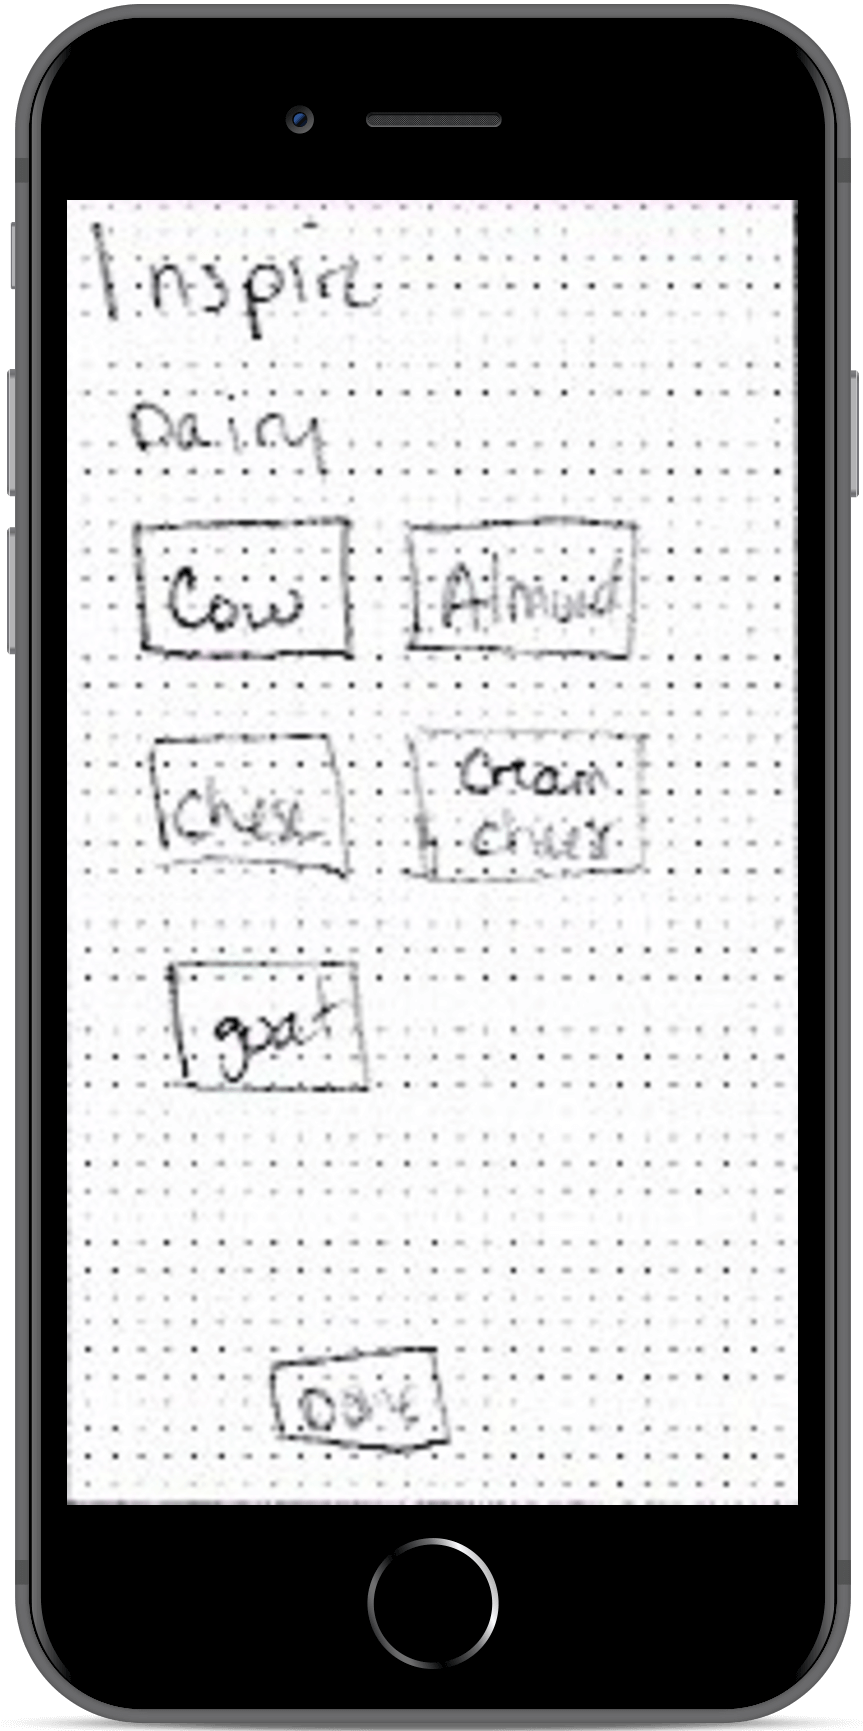 Inspire
Dairy
Cow
Almond
Chese
Cream
chees
goat